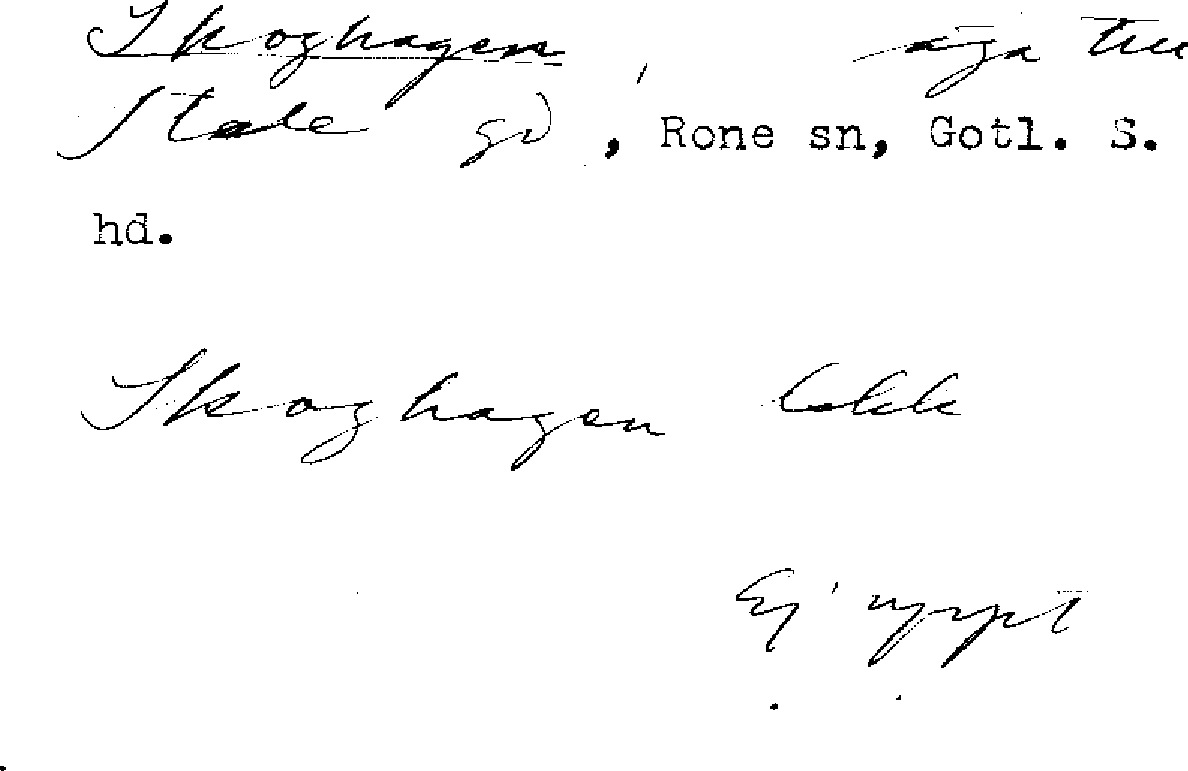 Skoghagen, äga till
Stale gd, Rone sn, Gotl. S.
hd.
Skoghagen
Ej uppt